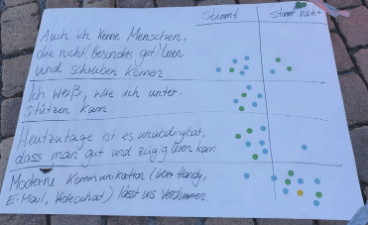 Stimmt
stimmt nicht
Auch ich kenne Menschen,
die nicht (besonders gut) lesen
und schreiben können.
Ich weiß, wie ich unter-
stützen kann
Heutzutage ist es unabdingbar,
dass man gut und zügig lesen kann.
Moderne Kommunikation (vom Handy,
E-Mail, Videochat) lässt uns verdummen.